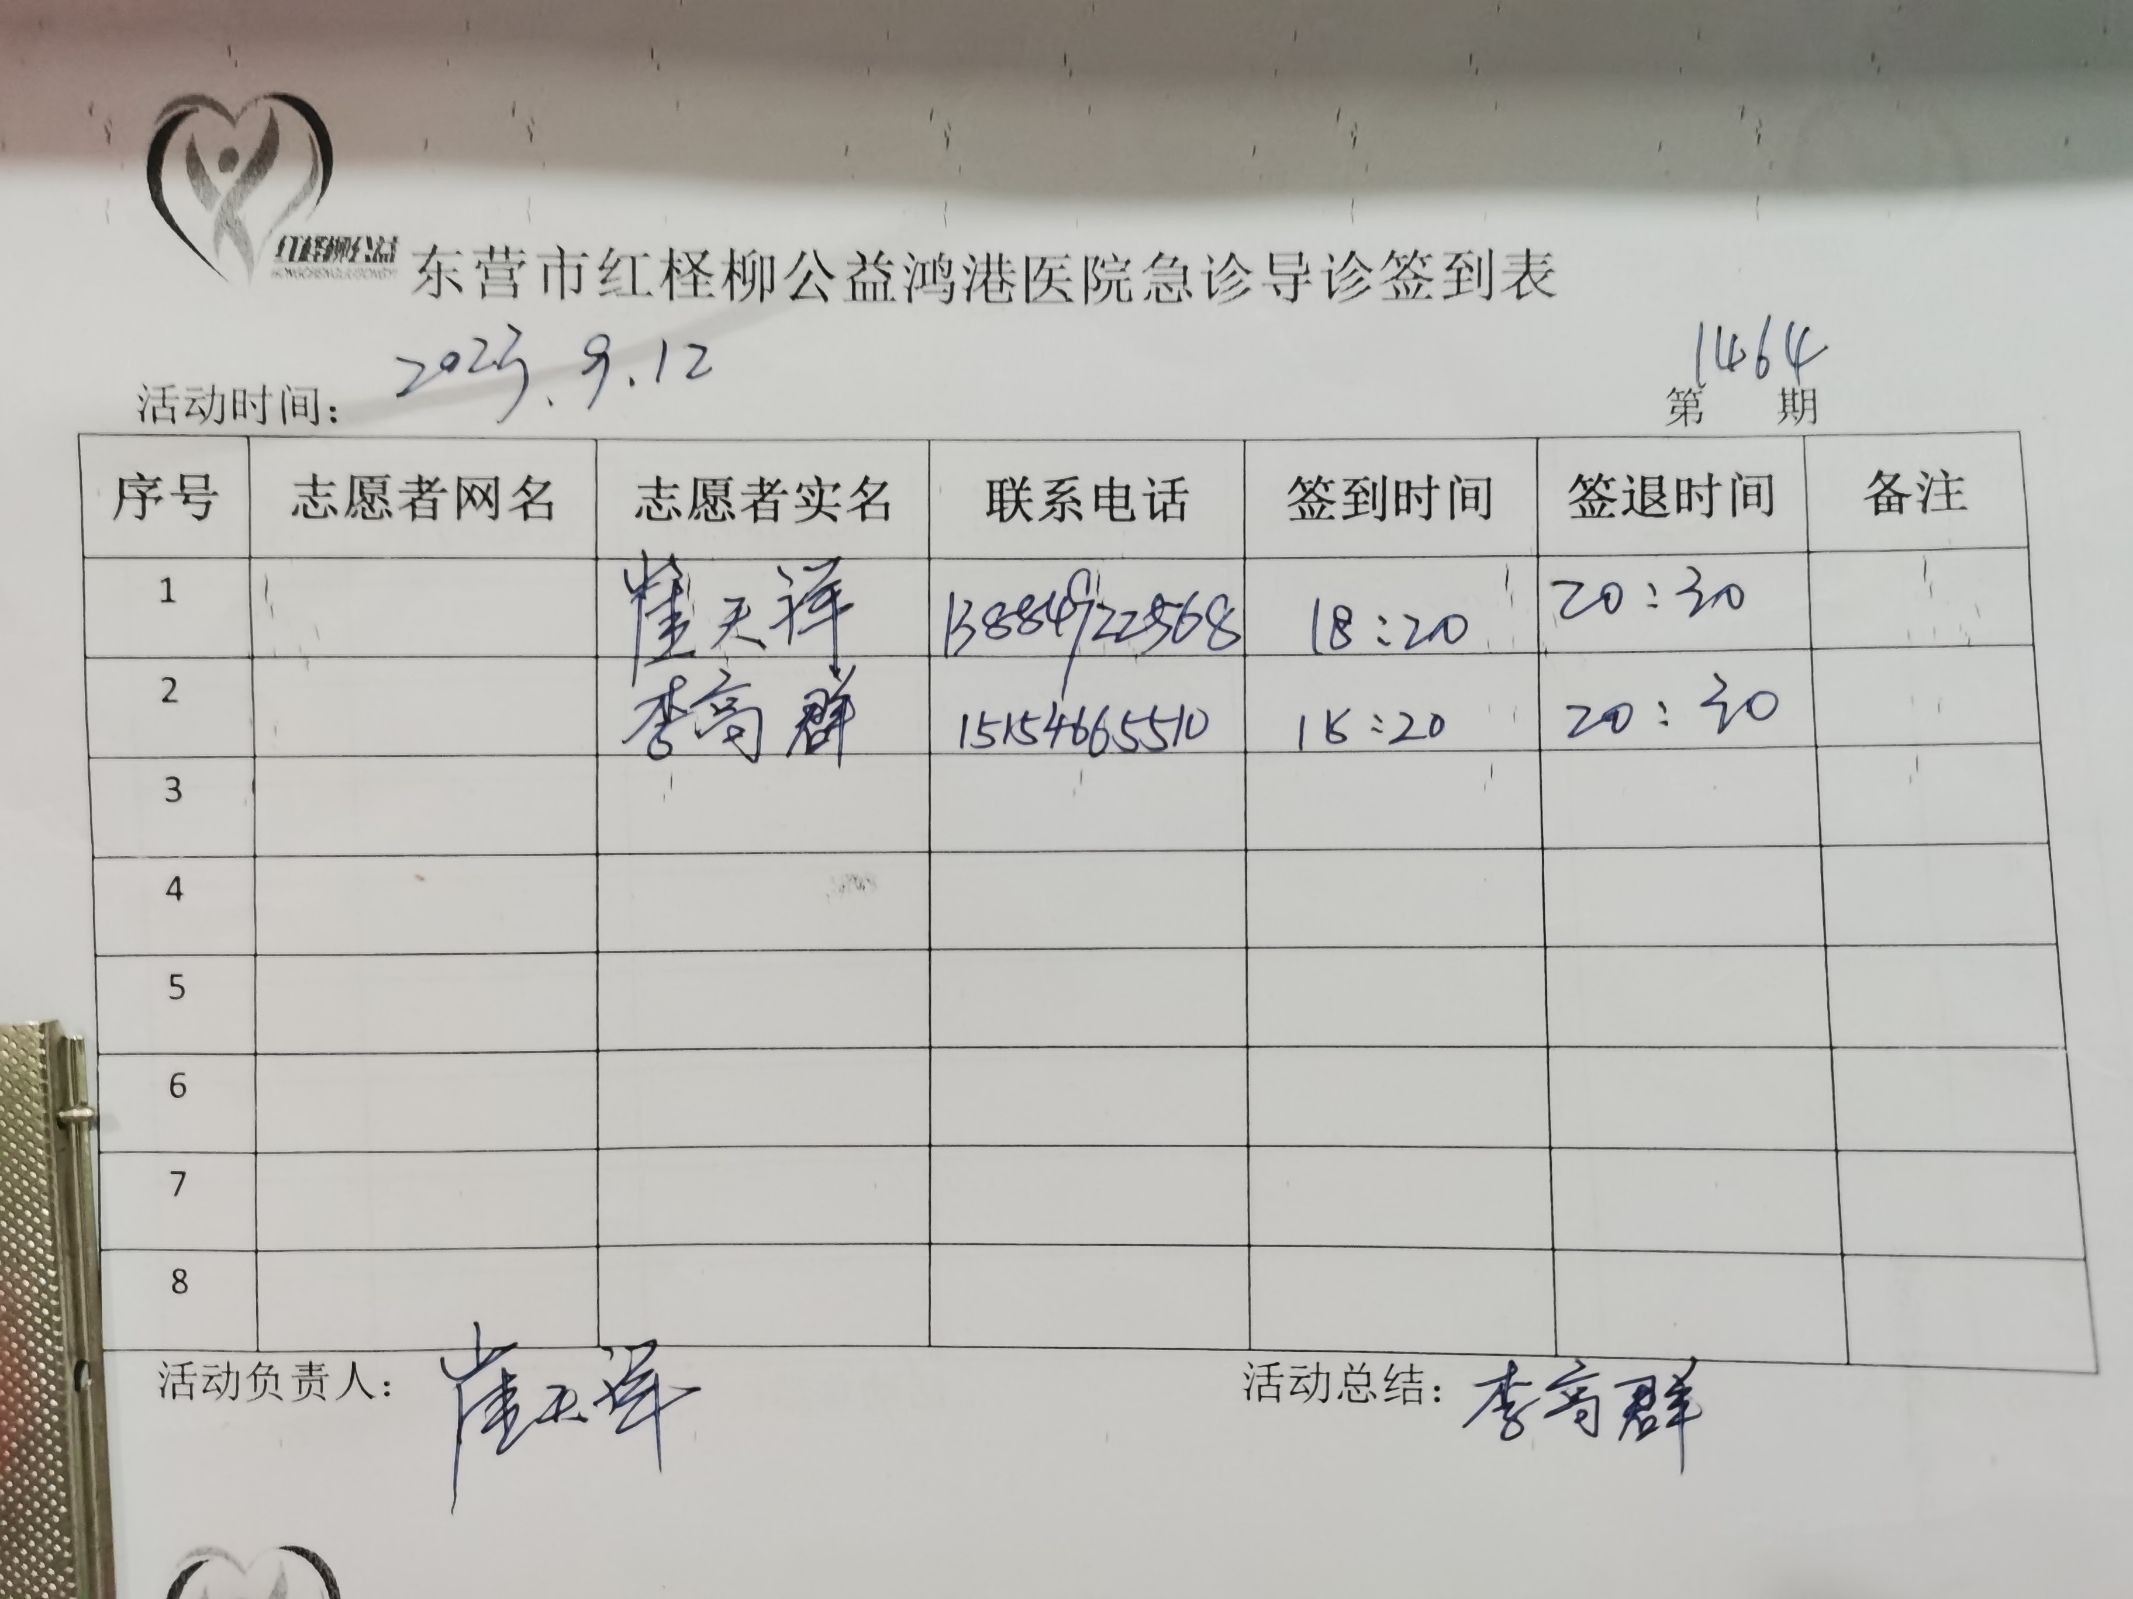 红柽柳公益
东营市红柽柳公益鸿港医院急诊导诊签到表
活动时间: 2023.9.12 第1464期
序号 志愿者网名 志愿者实名 联系电话 签到时间 签退时间 备注
1 崔天祥 13884922568 18:20 20:30
2 李高群 15154665510 18:20 20:30
3
4
5
6
7
8
活动负责人: 崔天祥 活动总结: 李高群